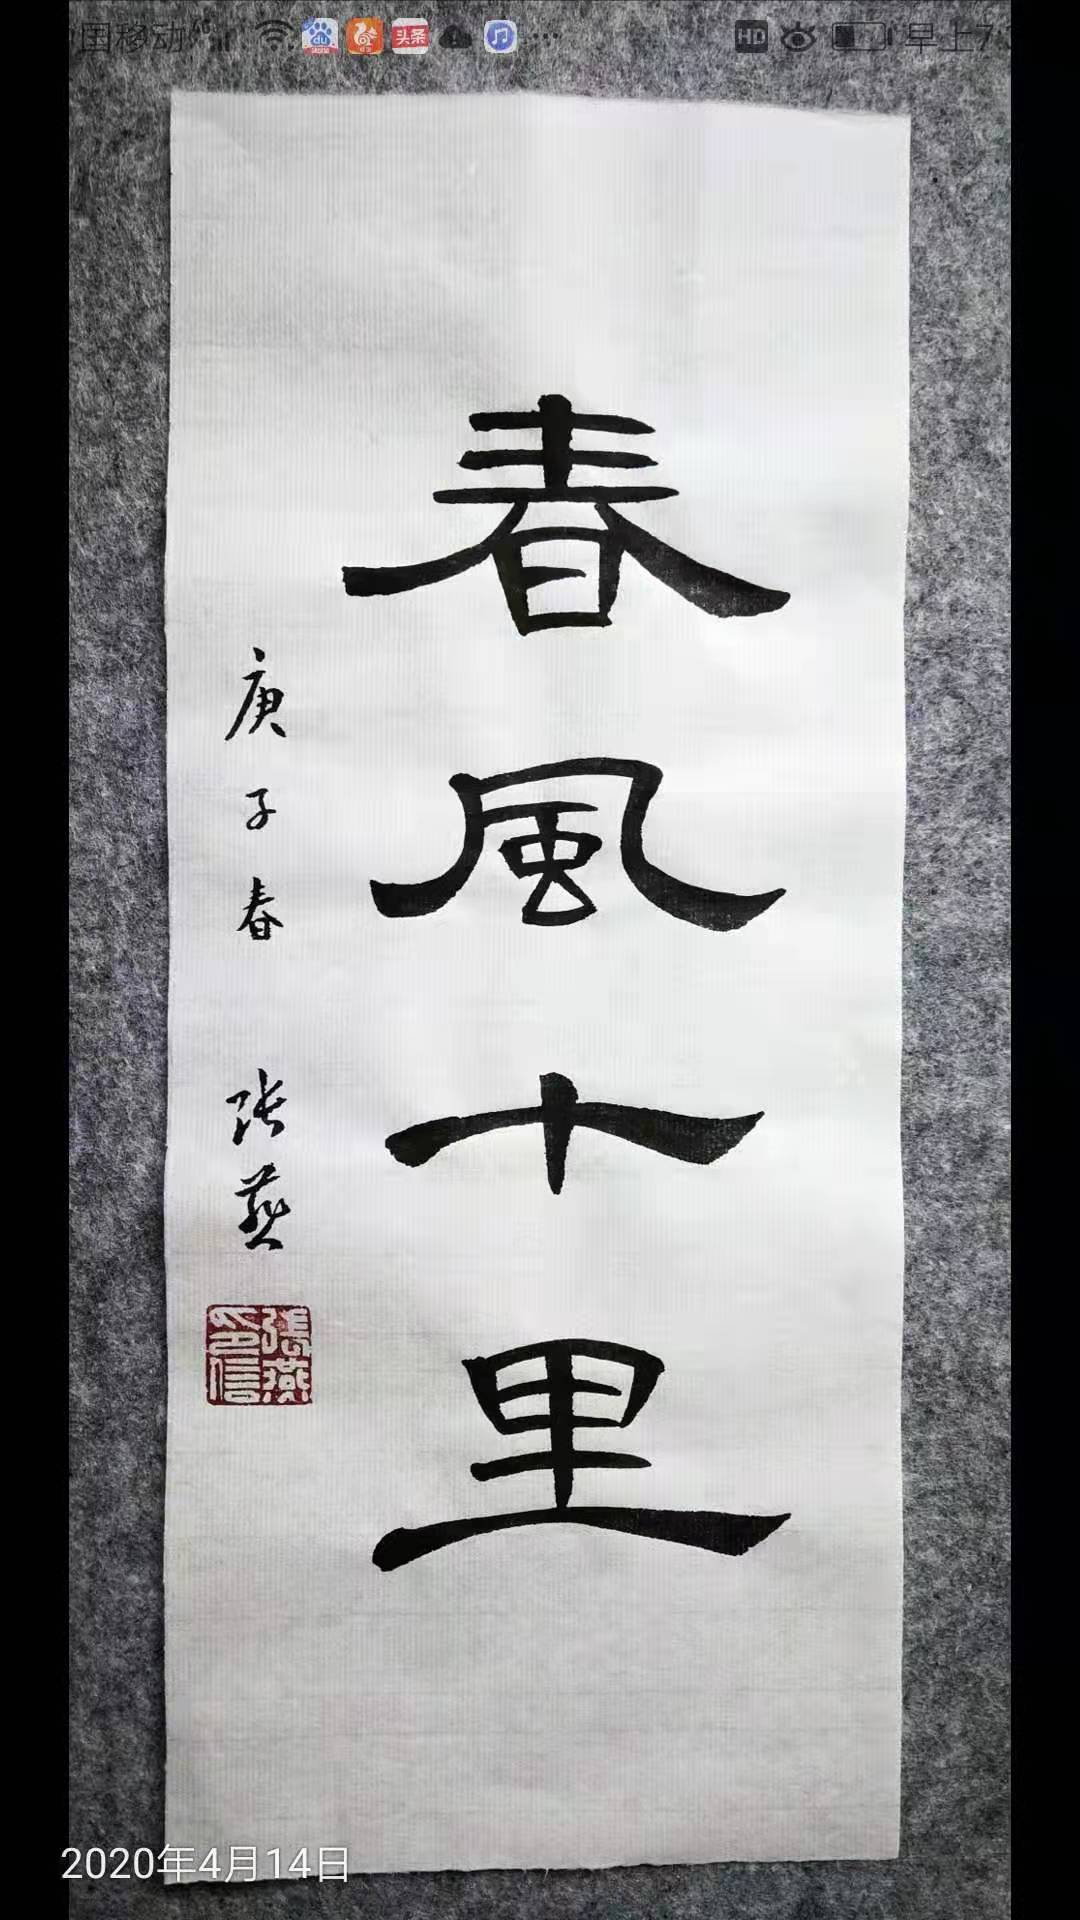 国移动
HD
早上7
春風十里
庚子春 张燕
張燕
印信
du
头条
2020年4月14日